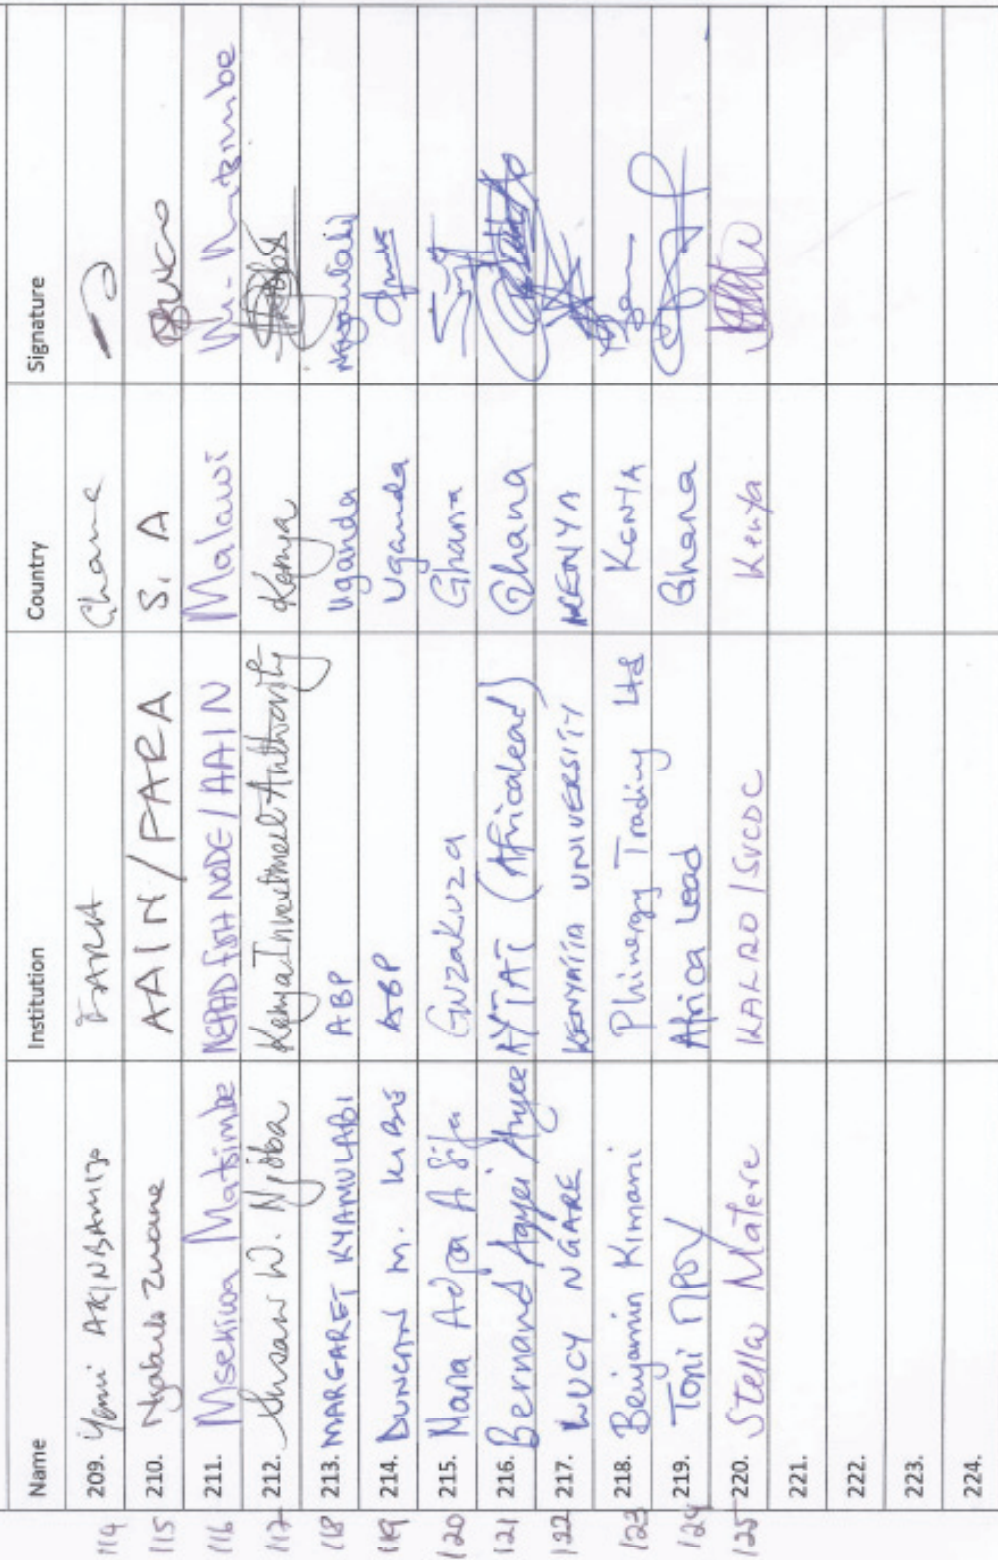 Name Institution Country Signature
114 209. Yemi AKINBAMIJO FARA Ghana
115 210. Zwane AAIN/PARA S. A
116 211. Msekiwa Matsimbe NEPAD FISH NODE/AAIN Malawi M. Matsimbe
117 212. Susan W. Njoba Kenya Investment Authority Kenya
118 213. MARGARET KYAMULABI ABP Uganda
119 214. DUNCAN M. ABP Uganda
120 215. Adjoa A Guzakuza Ghana
121 216. Bernard Agyei AYTAT (Africalead) Ghana
122 217. LUCY NGARE KENYATTA UNIVERSITY KENYA
123 218. Benjamin Kimani Phinergy Trading Ltd KENYA
124 219. Toni Africa Lead Ghana
125 220. Stella Matere KALRO/SVCDC Kenya
221.
222.
223.
224.